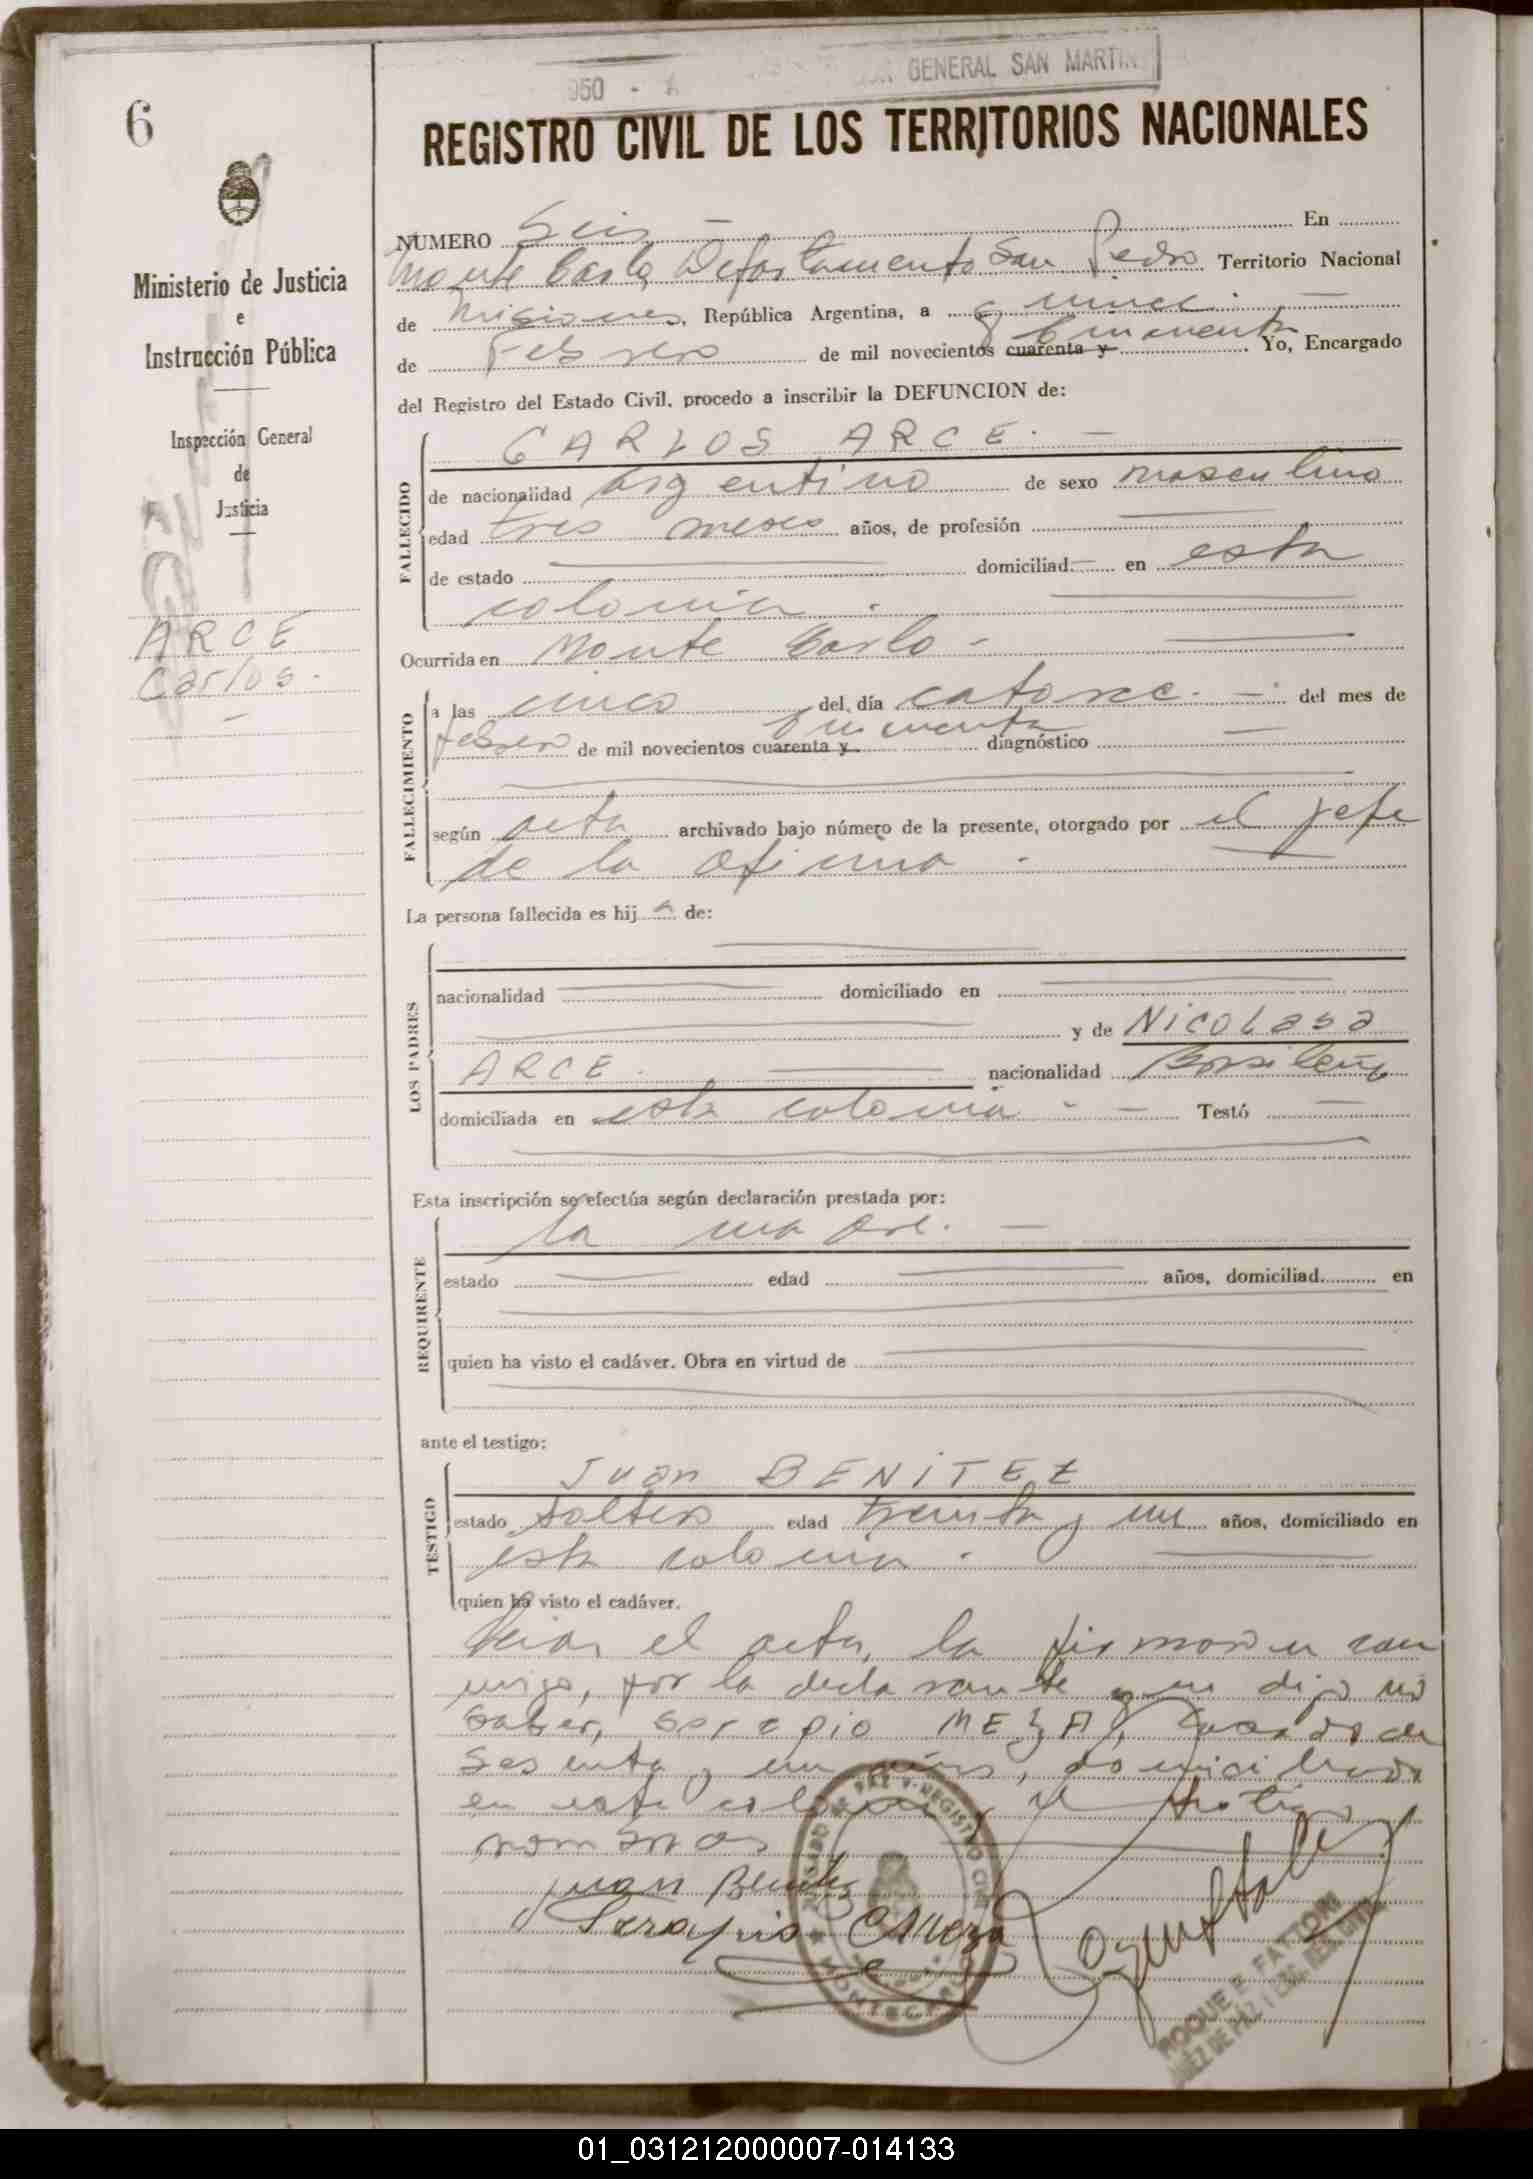 1950 - A GENERAL SAN MARTIN
6
REGISTRO CIVIL DE LOS TERRITORIOS NACIONALES
Ministerio de Justicia
e
Instrucción Pública
Inspección General
de
Justicia
ARCE
Carlos.
NUMERO Seis En
Monte Carlo Departamento San Pedro Territorio Nacional
de Misiones, República Argentina, a quince
de Febrero de mil novecientos cuarenta y cincuenta. Yo, Encargado
del Registro del Estado Civil, procedo a inscribir la DEFUNCION de:
FALLECIDO
CARLOS ARCE.
de nacionalidad argentino de sexo masculino
edad tres meses años, de profesión
de estado domiciliad en esta
colonia.
Ocurrida en Monte Carlo
FALLECIMIENTO
a las cinco del día catorce. del mes de
febrero de mil novecientos cuarenta y cincuenta diagnóstico
según acta archivado bajo número de la presente, otorgado por el jefe
de la oficina.
La persona fallecida es hij de:
LOS PADRES
nacionalidad domiciliado en
y de Nicolasa
ARCE. nacionalidad Brasileña
domiciliada en esta colonia Testó
Esta inscripción se efectúa según declaración prestada por:
REQUIRENTE
la madre.
estado edad años, domiciliad en
quien ha visto el cadáver. Obra en virtud de
ante el testigo:
TESTIGO
Juan BENITEZ
estado soltero edad treinta y un años, domiciliado en
esta colonia.
quien ha visto el cadáver.
el acta, la firmaron con
migo, por la declarante que dijo no
saber, Serapio MEZA, casado de
sesenta y un años, domiciliado
en esta colonia y el testigo
nombrado
Juan Benitez
Serapio Meza
JUZGADO DE PAZ Y REGISTRO CIVIL
MONTECARLO
ROQUE E. FATTORI
JUEZ DE PAZ Y ENC. REG. CIVIL
01_031212000007-014133